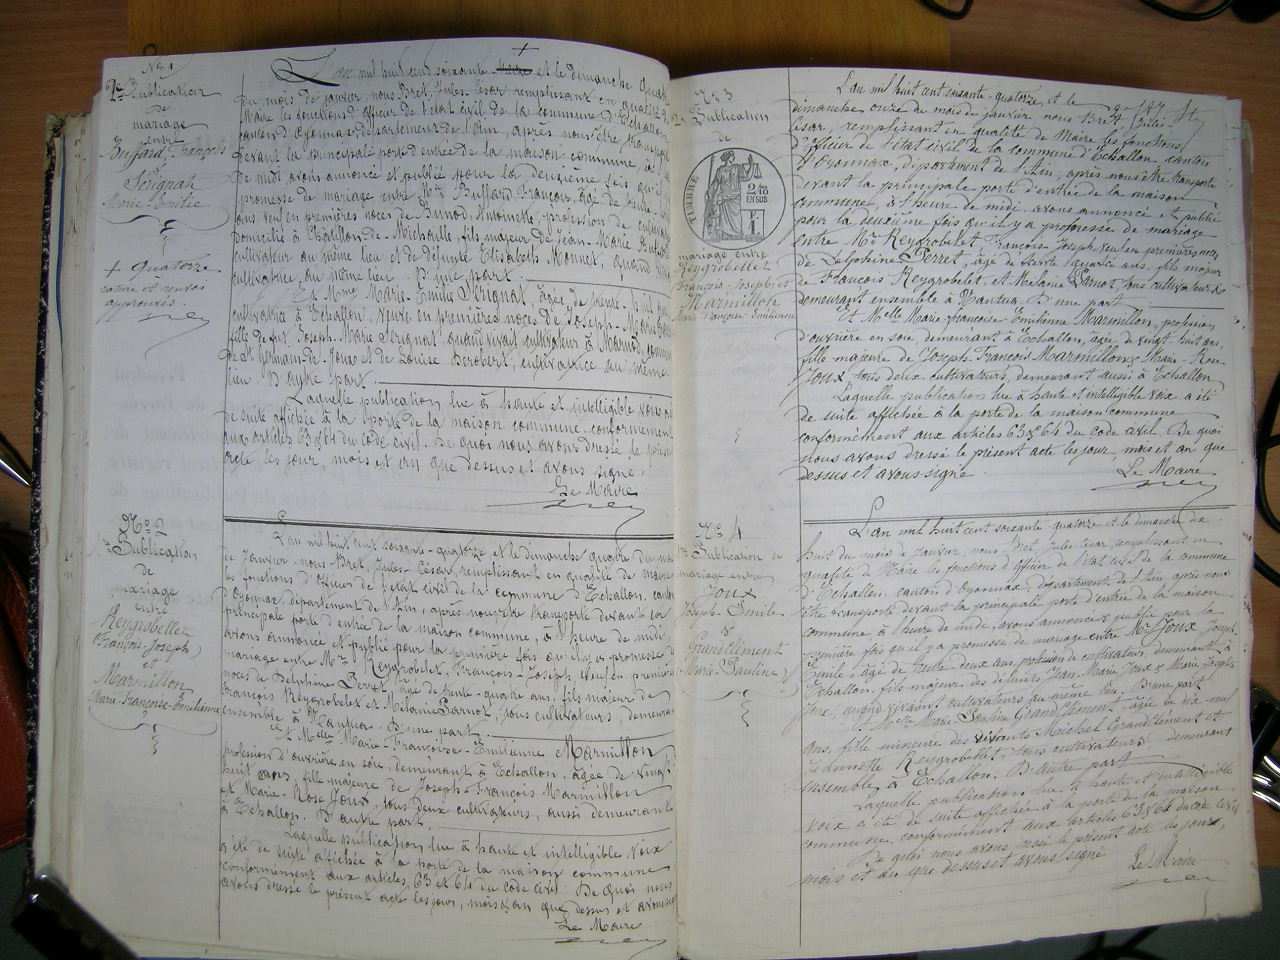 No 1
2e Publication
de
mariage
entre
Buffard François
et
Sérignat
Marie Emilie
+ quatorze
rayé et renvoi
approuvés.
+
L'an mil huit cent soixante et le dimanche quatre
du mois de janvier, nous Bret, Jules César remplissant en qualité de
Maire les fonctions d'officier de l'état civil de la commune d'Echallon
canton d'Oyonnax département de l'Ain, après nous être transporté
devant la principale porte d'entrée de la maison commune, à l'heure
de midi, avons annoncé et publié pour la deuxième fois qu'il y a
promesse de mariage entre Mr Buffard François, âgé de
ans veuf en premières noces de Antoinette, profession de cultivateur
domicilié à Châtillon-de-Michaille, fils majeur de Jean-Marie Buffard
cultivateur au même lieu et de défunte Elisabeth Monnet, quand vivait
cultivatrice au même lieu. D'une part.
Et Mme Marie-Emilie Sérignat, âgée de trente-huit ans
cultivatrice à Echallon, veuve en premières noces de Joseph-Marie
fille de feu Joseph-Marie Sérignat quand vivait cultivateur à commune
de St Germain de Joux et de Louise cultivatrice au même
lieu. D'autre part.
Laquelle publication, lue à haute et intelligible voix a été
de suite affichée à la porte de la maison commune conformément
aux articles 63 & 64 du code civil. De quoi nous avons dressé le présent
acte les jour, mois et an que dessus et avons signé.
Le Maire
No 2
1re Publication
de
mariage
entre
Reygrobellet
François-Joseph
et
Marmillon
Marie-Françoise-Emilienne
L'an mil huit cent soixante-quatorze et le dimanche quatre du mois
de Janvier, nous Bret, Jules César, remplissant en qualité de maire
les fonctions d'officier de l'état civil de la commune d'Echallon, canton
d'Oyonnax, département de l'Ain, après nous être transporté devant la
principale porte d'entrée de la maison commune, à l'heure de midi,
avons annoncé et publié pour la première fois qu'il y a promesse de
mariage entre Mr Reygrobelet, François-Joseph veuf en premières
noces de Delphine Perret, âgé de trente-quatre ans, fils majeur de
François Reygrobelet et Mélanie tous cultivateurs, demeurant
ensemble à Nantua. D'une part.
Et Melle Marie-Françoise-Emilienne Marmillon
profession d'ouvrière en soie, demeurant à Echallon, âgée de vingt
huit ans, fille majeure de Joseph-François Marmillon
et Marie-Rose Joux, tous deux cultivateurs, aussi demeurant
à Echallon. D'autre part.
Laquelle publication lue à haute et intelligible voix
a été de suite affichée à la porte de la maison commune
conformément aux articles 63 et 64 du code civil. De quoi nous
avons dressé le présent acte les jour, mois & an que dessus et avons signé
Le Maire
No 3
2e Publication
de
TIMBRE
2/10
EN SUS
mariage entre
Reygrobellet
François-Joseph et
Marmillon
Marie Françoise-Emilienne
L'an mil huit cent soixante-quatorze, et le
dimanche onze du mois de janvier nous Bret Jules
César, remplissant en qualité de Maire les fonctions
d'officier de l'état civil de la commune d'Echallon canton
d'Oyonnax, département de l'Ain, après nous être transporté
devant la principale porte d'entrée de la maison
commune, à l'heure de midi, avons annoncé & publié
pour la deuxième fois qu'il y a promesse de mariage
entre Mr Reygrobelet François Joseph veuf en premières noces
de Delphine Perret, âgé de trente quatre ans, fils majeur
de François Reygrobelet, et Mélanie tous cultivateurs
demeurant ensemble à Nantua. D'une part
Et Melle Marie-Françoise-Emilienne Marmillon, profession
d'ouvrière en soie, demeurant à Echallon, âgée de vingt huit ans,
fille majeure de Joseph François Marmillon & Marie-Rose
Joux tous deux cultivateurs, demeurant aussi à Echallon
Laquelle publication lue à haute et intelligible voix a été
de suite affichée à la porte de la maison commune
conformément aux articles 63 & 64 du code civil. De quoi
nous avons dressé le présent acte les jour, mois et an que
dessus et avons signé
Le Maire
No 4
1re Publication de
mariage entre
Joux
Joseph Emile
&
Grandclément
Marie Pauline
L'an mil huit cent soixante quatorze et le dimanche dix
huit du mois de Janvier, nous Bret Jules César, remplissant en
qualité de Maire les fonctions d'officier de l'état civil de la commune
d'Echallon, canton d'Oyonnax, département de l'Ain, après nous
être transporté devant la principale porte d'entrée de la maison
commune à l'heure de midi, avons annoncé & publié pour la
première fois qu'il y a promesse de mariage entre Mr Joux Joseph
Emile, âgé de trente deux ans, profession de cultivateur, demeurant à
Echallon, fils majeur des défunts Jean Marie Joux & Marie Josephte
Joux, quand vivaient cultivateurs au même lieu. D'une part
Et Melle Marie Pauline Grandclément, âgée de dix neuf
ans, fille mineure des vivants Michel Grandclément et
Reygrobellet, tous cultivateurs, demeurant
ensemble, à Echallon. D'autre part.
Laquelle publication lue à haute et intelligible
voix a été de suite affichée à la porte de la maison
commune, conformément aux articles 63 & 64 du code civil
De quoi nous avons dressé le présent acte les jour,
mois et an que dessus et avons signé
Le Maire